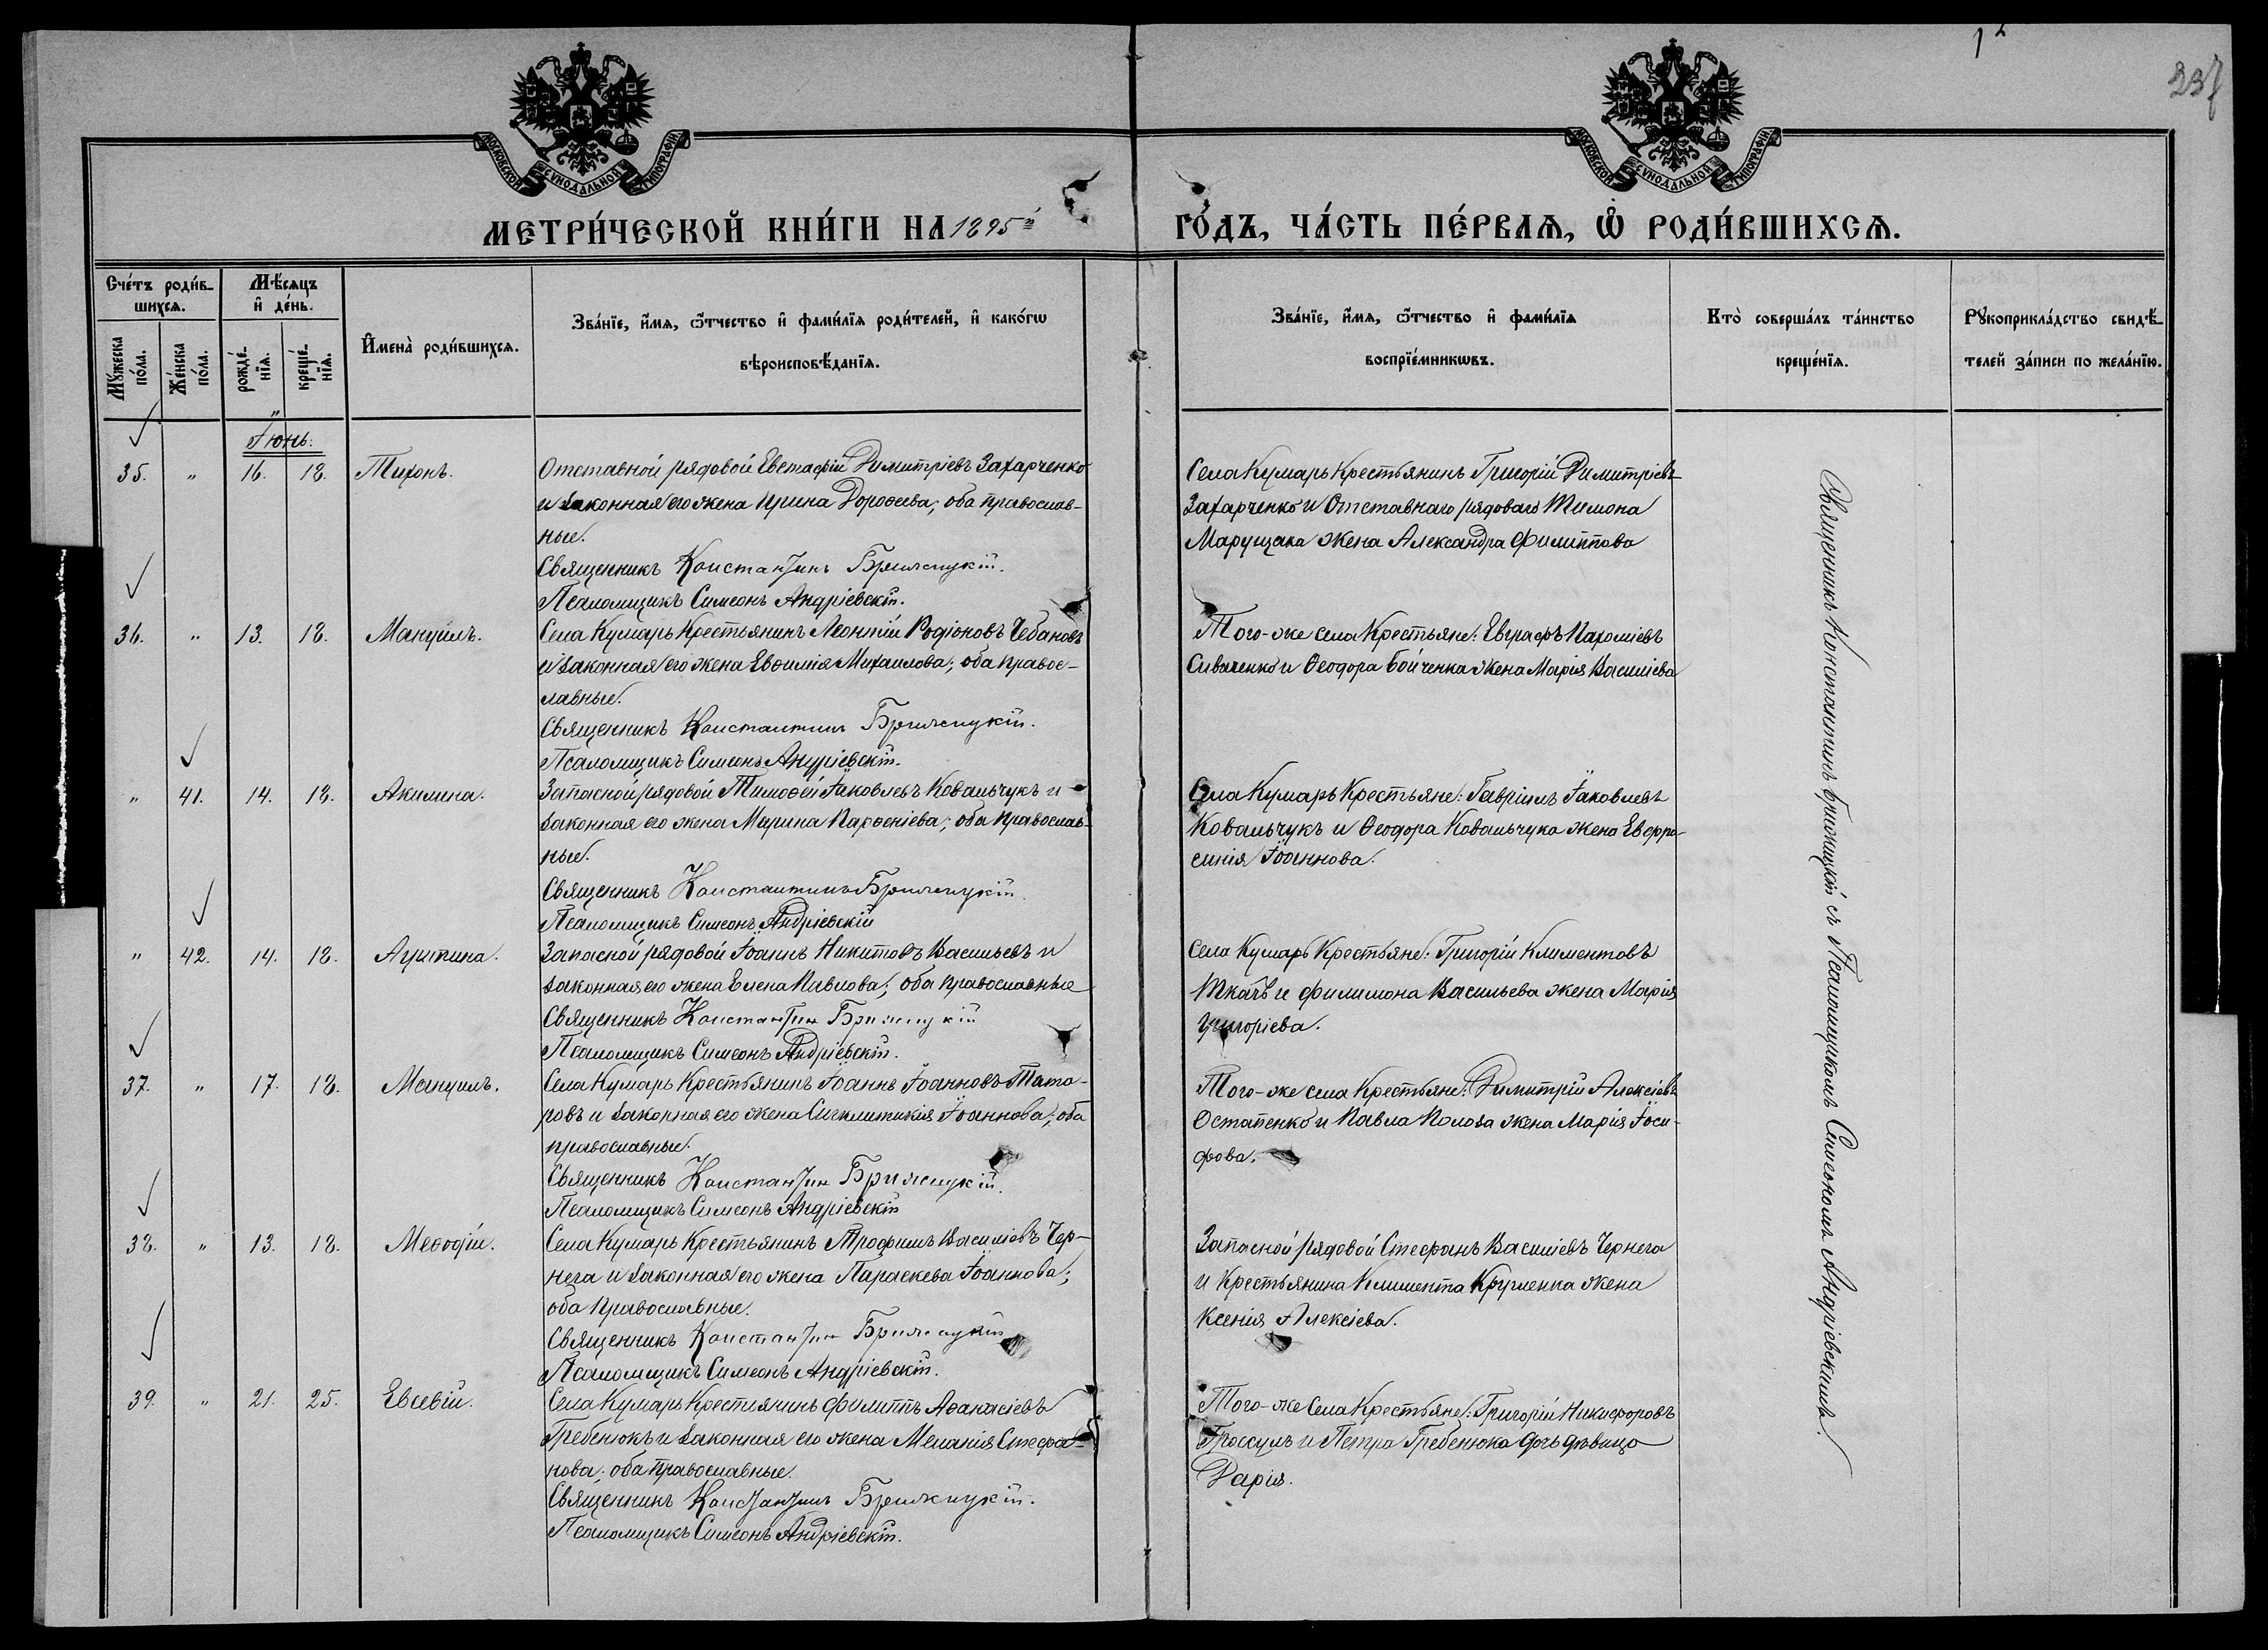 12
237
МОСКОВСКОЙ СУНОДАЛЬНОЙ ТИПОГРАФІИ
МОСКОВСКОЙ СУНОДАЛЬНОЙ ТИПОГРАФІИ
МЕТРИ́ЧЕСКОЙ КНИ́ГИ НА 1895й ГО́ДЪ, ЧА́СТЬ ПЕ́РВАѦ, Ѡ҆ РОДИ́ВШИХСѦ.
Сче́тъ роди́в-
шихсѧ.
Мѣ́сѧцъ
и҆ де́нь.
Мꙋ́жеска
по́ла.
Же́нска
по́ла.
рожде́-
нїѧ.
креще́-
нїѧ.
И҆мена̀ роди́вшихсѧ.
Зва́нїе, и҆́мѧ, ѻ҆́тчество и҆ фами́лїѧ роди́телей, и҆ како́гѡ
вѣроисповѣ́данїѧ.
Зва́нїе, и҆́мѧ, ѻ҆́тчество и҆ фами́лїѧ
воспрїе́мникѡвъ.
Кто̀ соверша́лъ та́инство
креще́нїѧ.
Рꙋкоприкла́дство свидѣ́-
телей за́писи по жела́нїю.
Іюнь.
35. " 16. 18. Тихонъ.
Отставной рядовой Евстафій Димитріевъ Захарченко
и законная его жена Ирина Дороѳеева; оба православ-
ные.
Священникъ Константинъ Брижицкій.
Псаломщикъ Симеонъ Андріевскій.
Села Кумарь Крестьянинъ Григорій Димитріевъ
Захарченко и Отставнаго рядоваго Тимона
Марущака жена Александра Филиппова
36. " 13. 18. Мануилъ.
Села Кумарь Крестьянинъ Леонтій Родіоновъ Чебановъ
и законная его жена Евѳимія Михаилова; оба правос-
лавные.
Священникъ Константинъ Брижицкій.
Псаломщикъ Симеонъ Андріевскій.
Того-же села Крестьяне: Евграфъ Пахоміевъ
Сиваченко и Ѳеодора Бойченка жена Марія Василіева
" 41. 14. 18. Акилина.
Запасной рядовой Тимоѳей Іаковлевъ Ковальчукъ и
законная его жена Марина Парѳеніева; оба православ-
ные.
Священникъ Константинъ Брижицкій.
Псаломщикъ Симеонъ Андріевскій
Села Кумарь Крестьяне: Гавріилъ Іаковлевъ
Ковальчукъ и Ѳеодора Ковальчука жена Евфро-
синія Іоаннова.
" 42. 14. 18. Агрипина.
Запасной рядовой Іоаннъ Никитовъ Васильевъ и
законная его жена Елена Павлова; оба православные
Священникъ Константинъ Брижицкій
Псаломщикъ Симеонъ Андріевскій.
Села Кумарь Крестьяне: Григорій Климентовъ
Ткачъ и Филимона Васильева жена Марія
Григоріева.
37. " 17. 18. Мануилъ.
Села Кумарь Крестьянинъ Іоаннъ Іоанновъ Тата-
ровъ и законная его жена Сигклитикія Іоаннова; оба
православные.
Священникъ Константинъ Брижицкій.
Псаломщикъ Симеонъ Андріевскій
Того-же села Крестьяне: Димитрій Алексіевъ
Остапенко и Павла Попова жена Марія Іоси-
фова.
38. " 13. 18. Меѳодій.
Села Кумарь Крестьянинъ Трофимъ Василіевъ Чер-
нега и законная его жена Параскева Іоаннова;
оба православные.
Священникъ Константинъ Брижицкій
Псаломщикъ Симеонъ Андріевскій.
Запасной рядовой Стефанъ Василіевъ Чернега
и Крестьянина Климента жена
Ксенія Алексіева.
39. " 21. 25. Евсевій.
Села Кумарь Крестиянинъ Филиппъ Аѳанасіевъ
Гребенюкъ и законная его жена Меланія Стефа-
нова; оба православные.
Священникъ Константинъ Брижицкій.
Псаломщикъ Симеонъ Андріевскій.
Того-же Села Крестьяне: Григорій Никифоровъ
Гроссулъ и Петра Гребенюка дочь дѣвица
Дарія.
Священникъ Константинъ Брижицкій съ Псаломщикомъ Симеономъ Андріевскимъ.